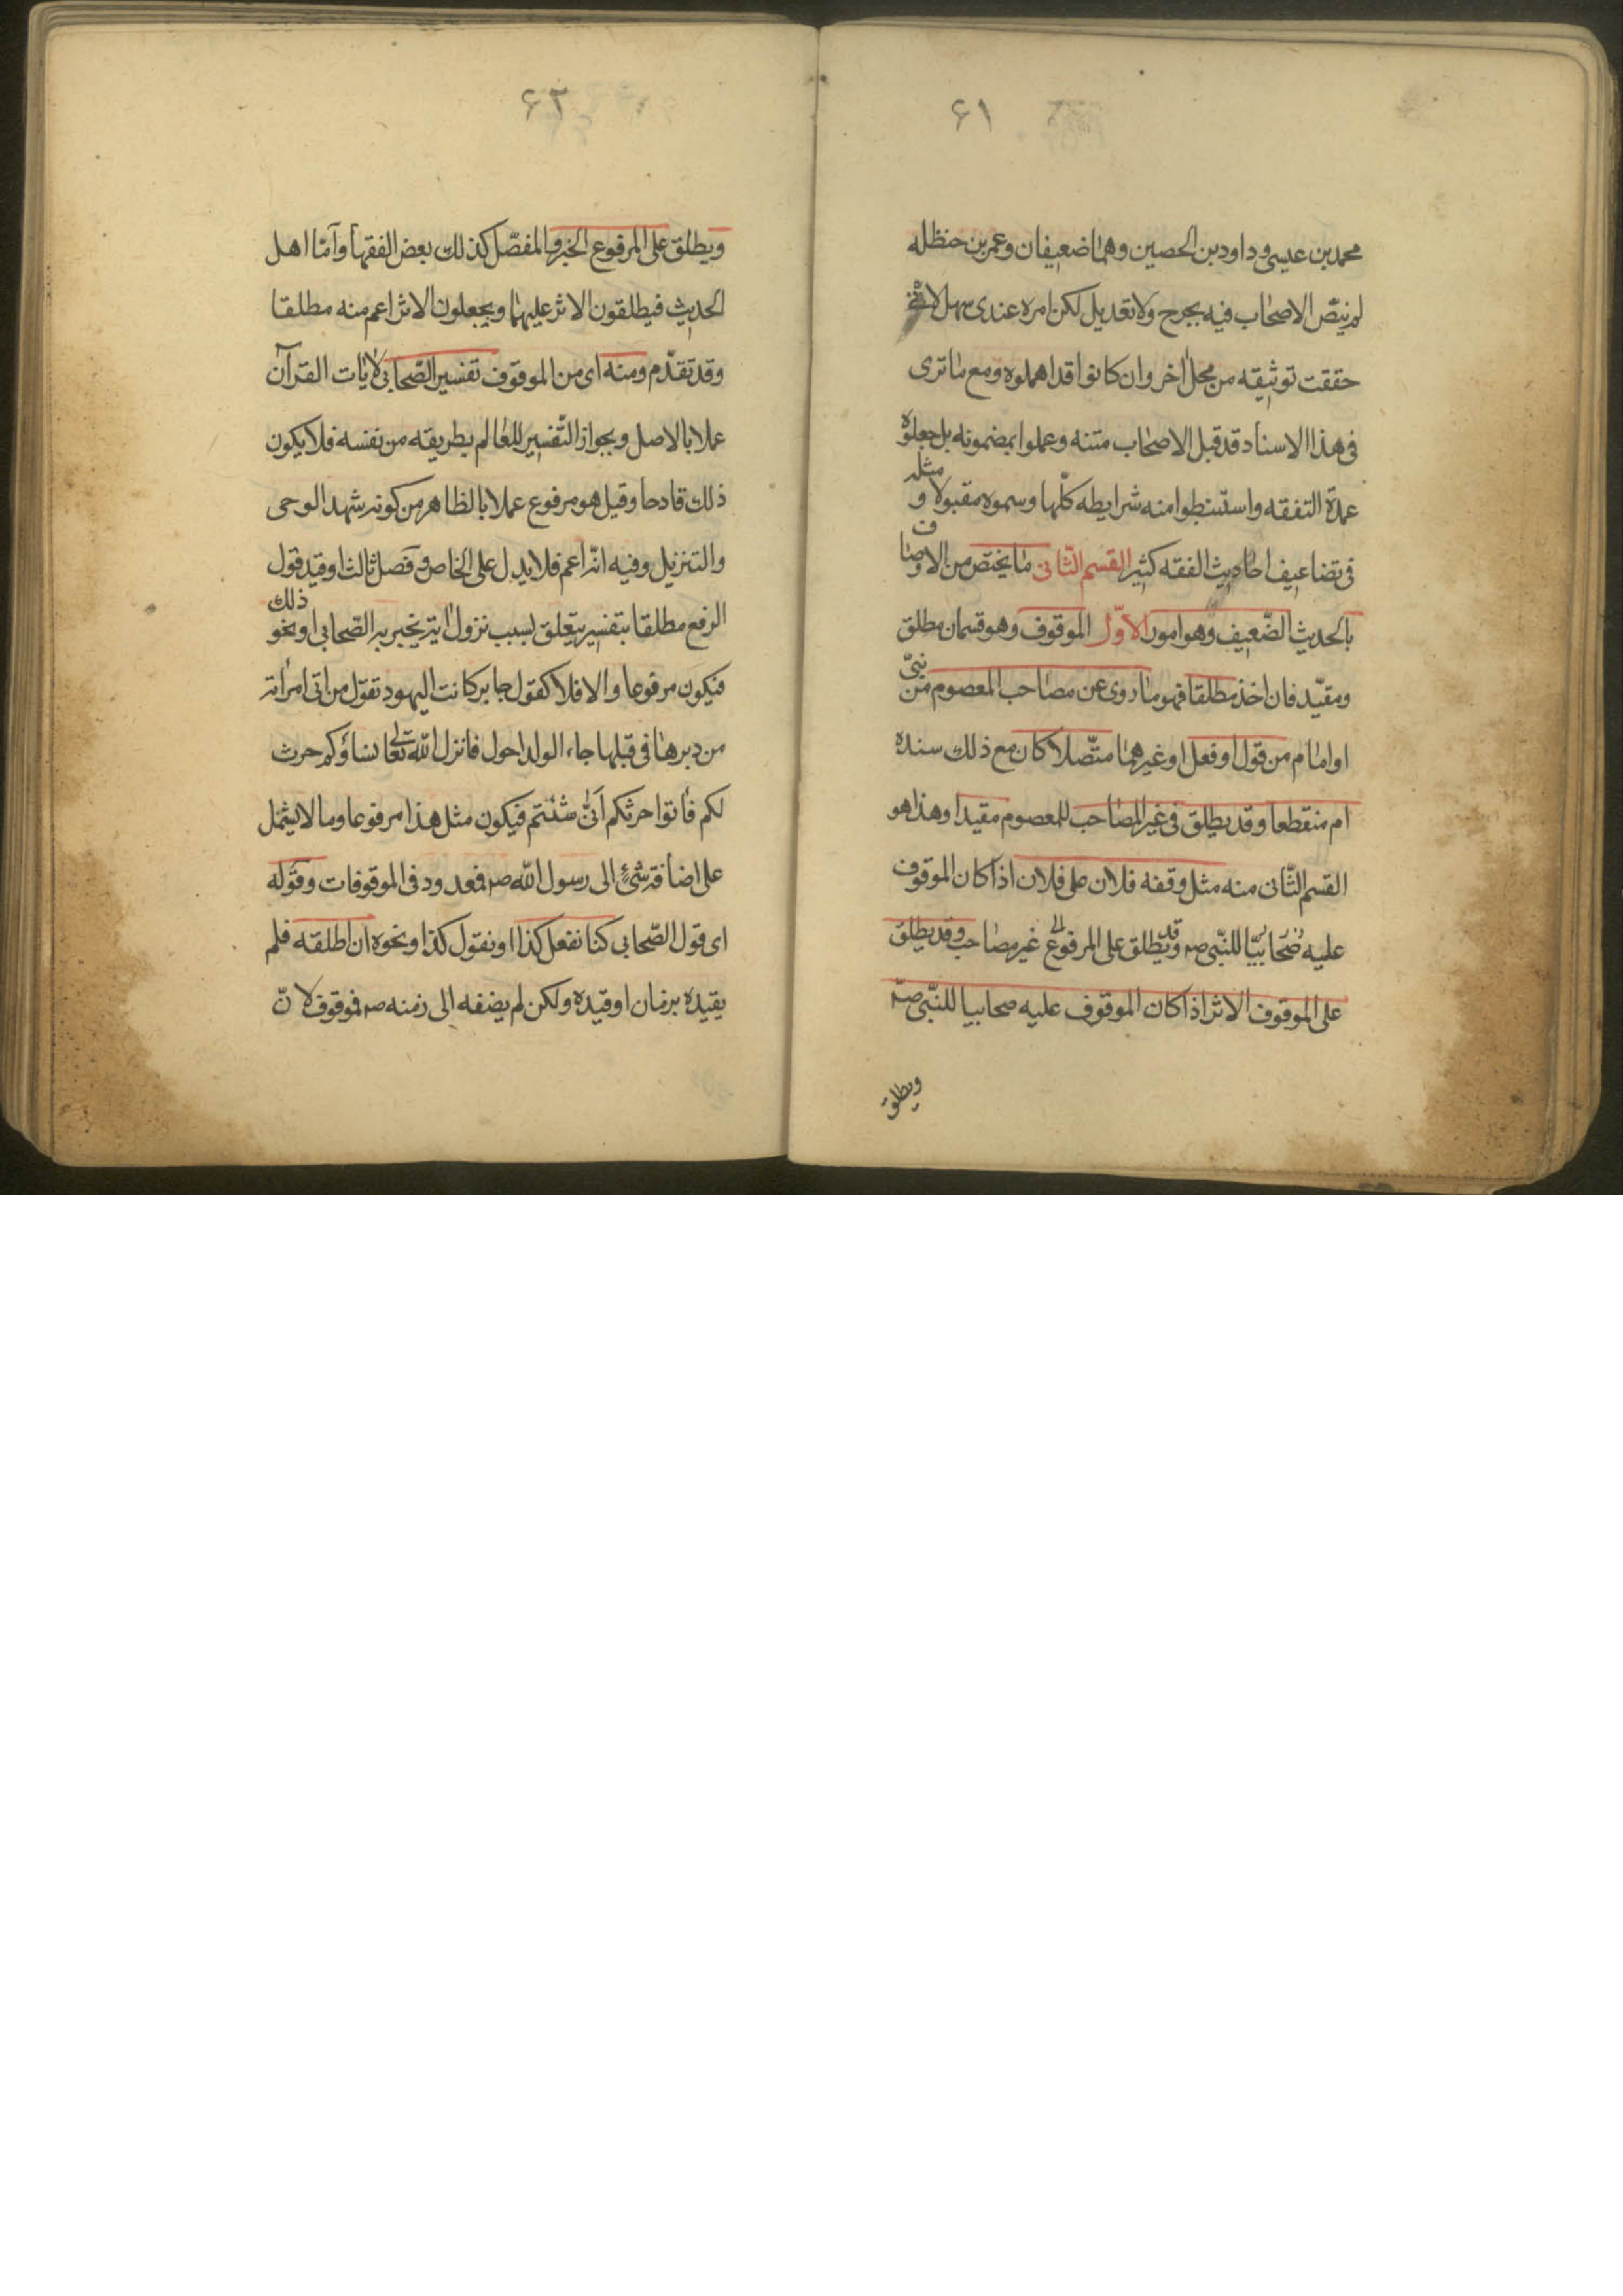 ۶۱
محمد بن عيسى وداود بن الحصين وهمٰا ضعيفان وعمر بن حنظله
لم ينصّ الاصحٰاب فيه بجرح ولا تعديل لكن امره عندى سهل لانى
حققت توثيقه من محلّ اخر وان كانوا قد اهملوه ومع مٰا ترى
فى هذا الاسناد قد قبل الاصحٰاب متنه وعملوا بمضمونه بل جعلوه
عمدة التفقه واستنبطوا منه شرايطه كلّها وسموه مقبولا ومثله
فى تضاعيف احٰاديث الفقه كثير القسم الثّانى مٰا يختص من الاوصٰاف
بالحديث الضّعيف وهو امور الاوّل الموقوف وهو قسمان مطلق
ومقيّد فان اخذ مطلقا فهو مٰا روى عن مصٰاحب المعصوم من نبىّ
او امٰام من قول او فعل او غيرهمٰا متّصلا كان مع ذلك سنده
ام منقطعا وقد يطلق فى غير المصٰاحب للمعصوم مقيدا وهذا هو
القسم الثّانى منه مثل وقفه فلان على فلان اذا كان الموقوف
عليه غير مصٰاحب وقد يطلق
على الموقوف الاثر اذا كان الموقوف عليه صحابيا للنّبى صه
ويطلق
۶۲
ويطلق على المرفوع الخبر والمفصّل كذلك بعض الفقهٰا وأمّا اهل
الحديث فيطلقون الاثر عليهمٰا ويجعلون الاثر اعم منه مطلقا
وقد تقدّم ومنه اى من الموقوف تفسير الصّحابى لاٰيات القرآن
عملا بالاصل ويجواز التّفسير للعٰالم بطريقه من نفسه فلا يكون
ذلك قادحا وقيل هو مرفوع عملا بالظاهر من كونه شهد الوحى
والتنزيل وفيه انّه اعم فلا يدل على الخاص وفصل ثالث او قيد قول
الرفع مطلقا بتفسير يتعلق بسبب نزول اٰية يخبر به الصّحابى او نحو ذلك
فيكون مرفوعا والا فلا كقول جابر كانت اليهود تقول من اتى امرأته
من دبرهٰا فى قبلها جاء الولد احول فانزل اللّه تعالى نساؤكم حرث
لكم فأتوا حرثكم أنّى شئتم فيكون مثل هذا مرفوعا وما لا يشمل
على اضافة شىء الى رسول اللّه صه فمعدود فى الموقوفات وقوله
اى قول الصّحابى كنا نفعل كذا او نقول كذا ونحوه ان اطلقه فلم
يقيده بزمان او قيده ولكن لم يضفه الى زمنه صه فموقوف لانّ